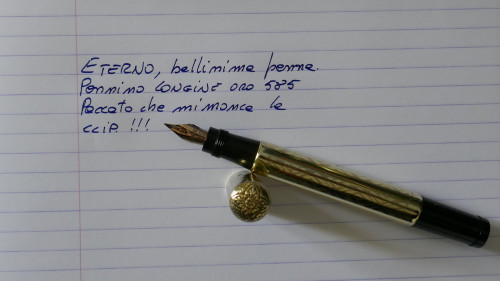 ETERNO, bellissima penna.
Pennino LONGINE ORO 585
Peccato che mi manca la
CLIP. !!!